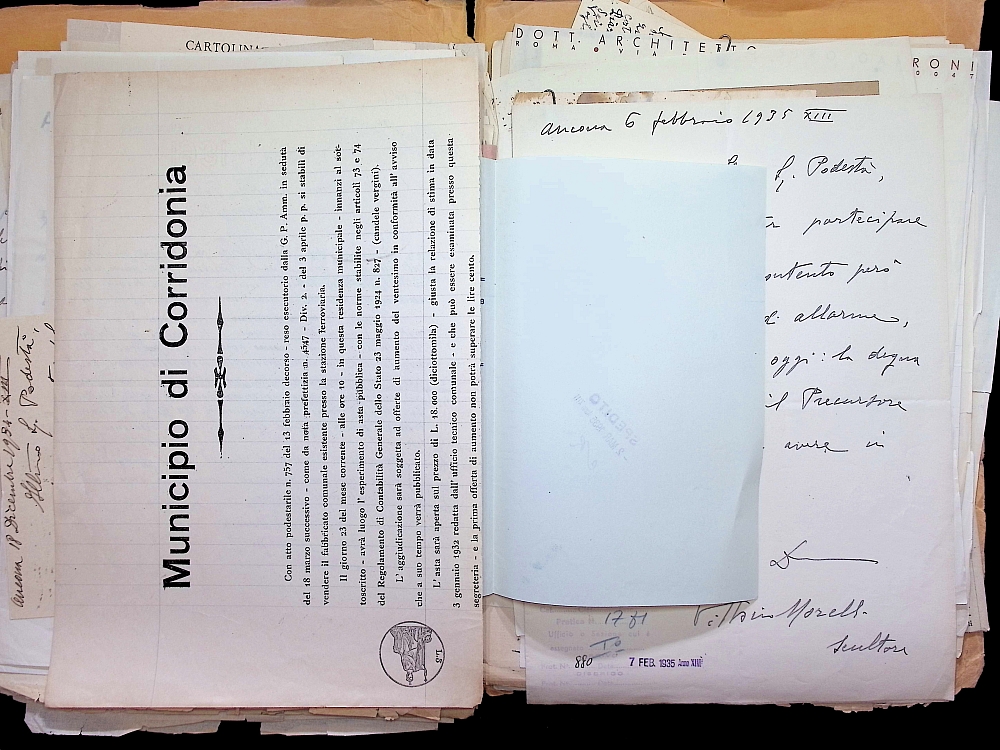 CARTOLINA
DOTT. ARCHITETTO
ROMA VIA
RONI
0047
Ancona 18 Dicembre 1934 - XIII
Podestà,
Municipio di Corridonia
Con atto podestarile n. 757 del 13 febbraio decorso - reso esecutorio dalla G. P. Amm. in seduta
del 18 marzo successivo - come da nota prefettizia n. 4547 - Div. 2. - del 3 aprile p. p. si stabilì di
vendere il fabbricato comunale esistente presso la stazione ferroviaria.
Il giorno 23 del mese corrente - alle ore 10 - in questa residenza municipale - innanzi al sot-
toscritto - avrà luogo l' esperimento di asta pubblica - con le norme stabilite negli articoli 73 e 74
del Regolamento di Contabilità Generale dello Stato 23 maggio 1924 n. 827 - (candele vergini).
L' aggiudicazione sarà soggetta ad offerte di aumento del ventesimo in conformità all' avviso
che a suo tempo verrà pubblicato.
L' asta sarà aperta sul prezzo di L. 18.000 (diciottomila) - giusta la relazione di stima in data
3 gennaio 1932 redatta dall' ufficio tecnico comunale - e che può essere esaminata presso questa
segreteria - e la prima offerta di aumento non potrà superare le lire cento.
L.S
Ancona 6 febbraio 1935 XIII
Podestà,
partecipare
però
di allarme,
oggi: la degna
il Precursore
avere in
SPEDITO
Morelli
Scultore
1781
880
7 FEB. 1935 Anno XIII